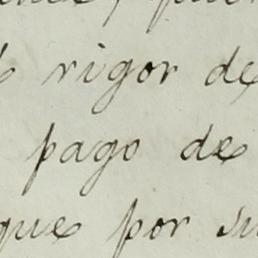 rigor de
pago de
que por su